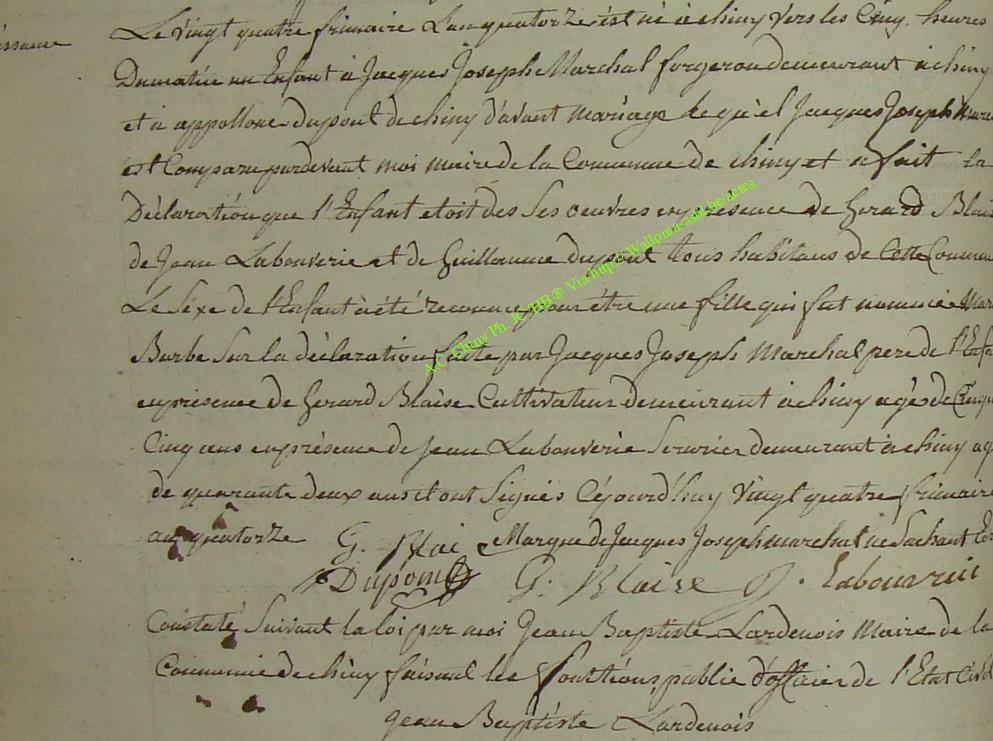 Le vingt quatre frimaire Lan quatorze est né à chiny vers les Cinq heures
issance
Dumatin un Enfant à Jacques Joseph Marchal forgeron demeurant à chiny
et à appollone dupont de chiny d'avant mariage le quel Jacques Joseph Marc
est Comparu pardevant moi maire de la Commune de chiny et a fait la
Déclaration que l'Enfant etoit des Ses oeuvres en présence de Gerard Blais
de Jean Labouverie et de Guillaume dupont tous habitans de Cette Commun
Le Sexe de l'Enfant à été reconnu pour être une fille qui fut nommée Mar
Barbe Sur la déclaration faite par Jacques Joseph Marchal pere de l'Enfa
en présence de Gerard Blaise Cultivateur demeurant à chiny agés de Cinqu
Cinq ans en présence de Jean Labouverie Serurier demeurant à chiny ag
de quarante deux ans et ont Signés Cejourd'huy vingt quatre frimaire
an quatorze G. Blai Marque de Jacques Joseph marchal ne Sachant Ecr
Dupont G. Blaise J. Labouverie
Constaté Suivant la loi par moi Jean Baptiste Lardenois Maire de la
Commune de chiny faisant les fonctions public d'officier de l'Etat Civil
Jean Baptiste Lardenois
A.C. Chiny Ph. JC. HB ® Via http://Wallonia-asbl.be/actes